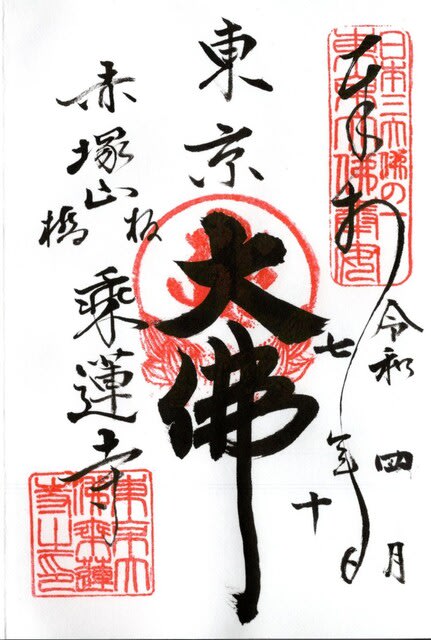 奉拝
日本三大佛の一
東京大佛奉安
令和七年四月十日
東京
大佛
赤塚山
板橋
乘蓮寺
東京大
佛乘蓮
寺山印